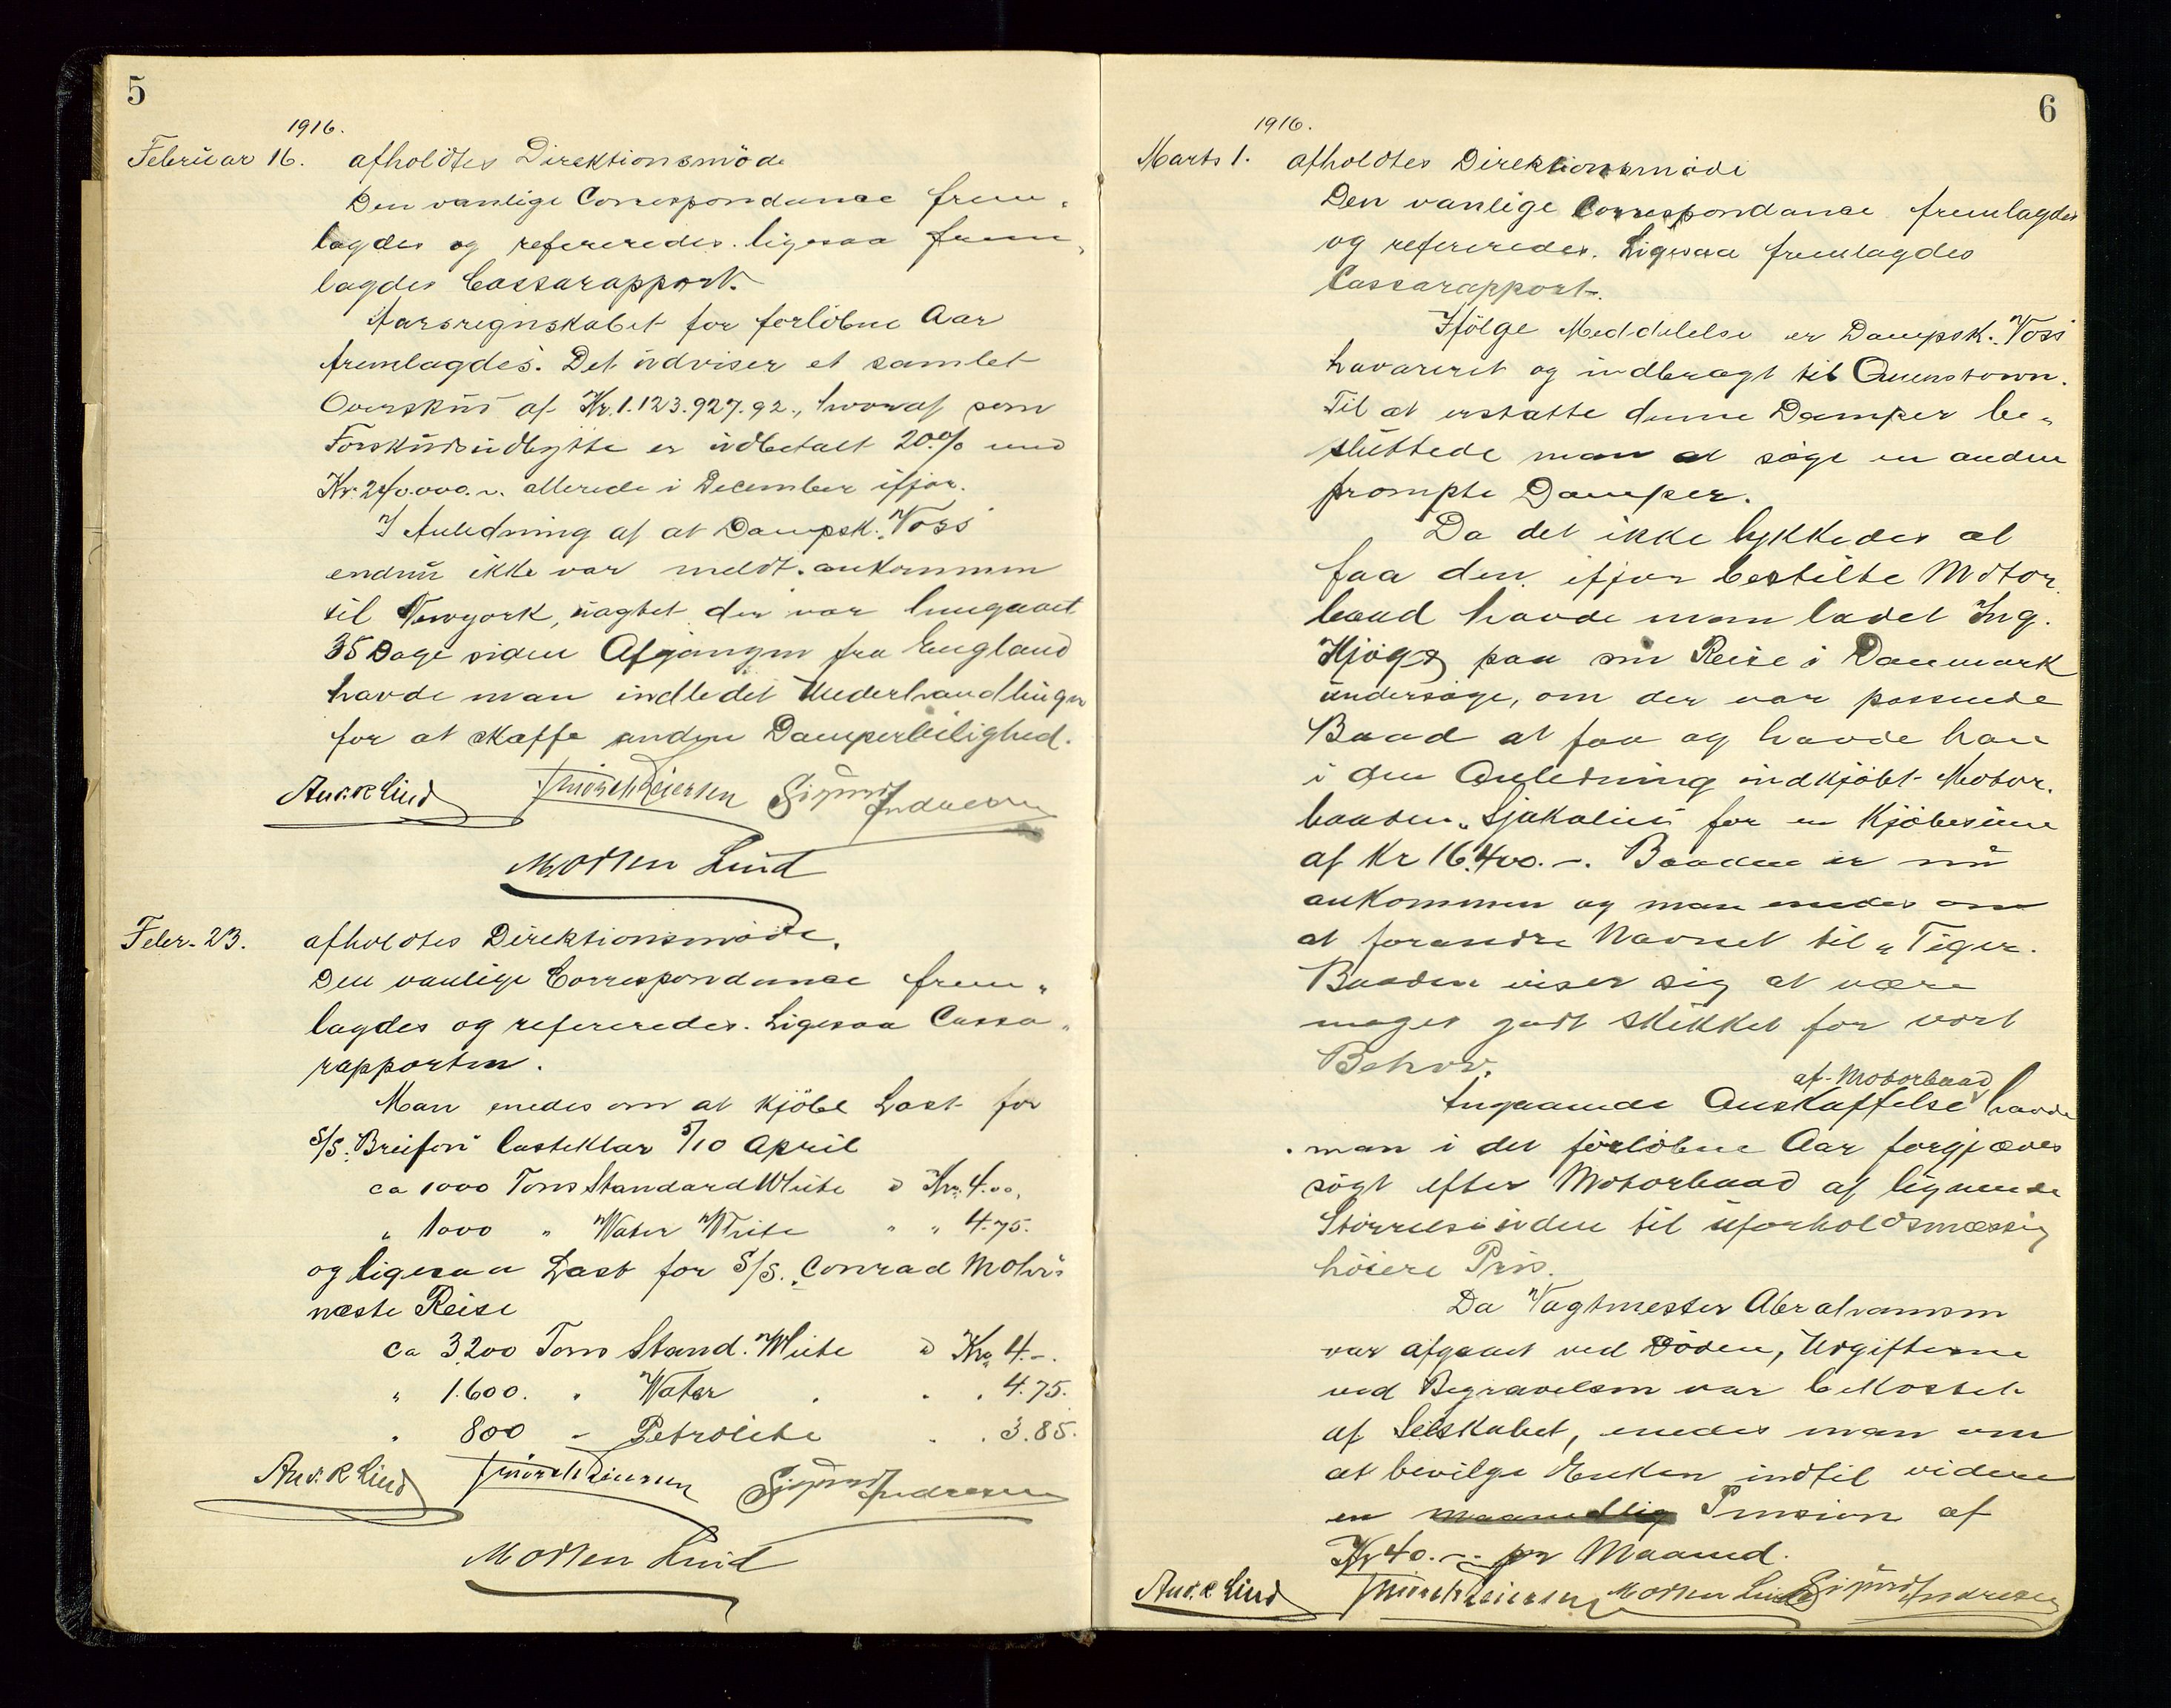 5
1916.
Februar 16. afholdtes Direktionsmöde
Den vanlige Correspondance frem-
lagdes og refereredes. ligesaa frem-
lagdes Cassarapport.
Aarsregnskabet for forlöbne Aar
fremlagdes. Det udviser et samlet
Overskud af Kr. 1.123.927.92., hvoraf som
Forskudsudbytte er udbetalt 20% med
Kr. 240.000.~. allerede i December ifjor.
I Anledning af at Dampsk. "Voss"
endnu ikke var meldt ankommen
til Newyork, uagtet der var hengaaet
35 Dage siden Afgangen fra England
havde man indledet Underhandlinger
for at skaffe anden Damperleilighed.
Andr. R Lind Sigurd Indresen
Morten Lind
Febr. 23. afholdtes Direktionsmöde.
Den vanlige Correspondance frem-
lagdes og refereredes. Ligesaa Cassa-
rapporten.
Man enedes om at kjöbe Last for
S/S. "Breifon" lasteklar 5/10 April
ca 1000 Tons Standard White à Kr. 4.00.
" 1000 " Water White " " 4.75.
og ligesaa Last for S/S. "Conrad Mohr"s
næste Reise
ca 3200 Tons Stand. White à Kr. 4.-.
" 1.600. " Water " " " 4.75.
" 800 " Petrolite " " 3.85.
Andr. R Lind Sigurd Indresen
Morten Lind
6
1916.
Marts 1. afholdtes Direktionsmöde
Den vanlige Correspondance fremlagdes
og refereredes. Ligesaa fremlagdes
Cassarapport.
Ifölge Meddelelse er Dampsk. "Voss"
havareret og indbragt til Queenstown.
Til at erstatte denne Damper be-
sluttede man at söge en anden
prompte Damper.
Da det ikke lykkedes at
faa den ifjor bestilte Motor-
baad havde man ladet Ing.
paa sin Reise i Danmark
undersöge, om der var passende
Baad at faa og havde han
i den Anledning indkjöbt Motor-
baaden "Sjakalen" for en Kjöbesum
af Kr 16.400.-. Baaden er nu
ankommen og man enedes om
at forandre Navnet til "Tiger".
Baaden viser sig at være
meget godt skikket for vort
Behov.
Angaaende Anskaffelse af Motorbaad havde
man i det forlöbne Aar forgjæves
sögt efter Motorbaad af lignende
Störrelse uden til uforholdsmæssig
höiere Pris.
Da Vagtmester Abrahamsen
var afgaaet ved Döden, Udgifterne
ved Begravelsen var bekostet
af Selskabet, enedes man om
at bevilge Enken indtil videre
en maanedlig Pension af
Kr 40.-. pr Maaned.
Andr. R Lind Morten Lind Sigurd Indresen